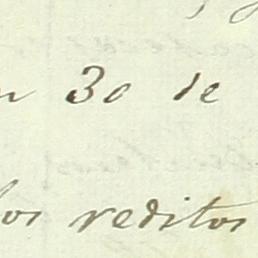 30 de
los reditos